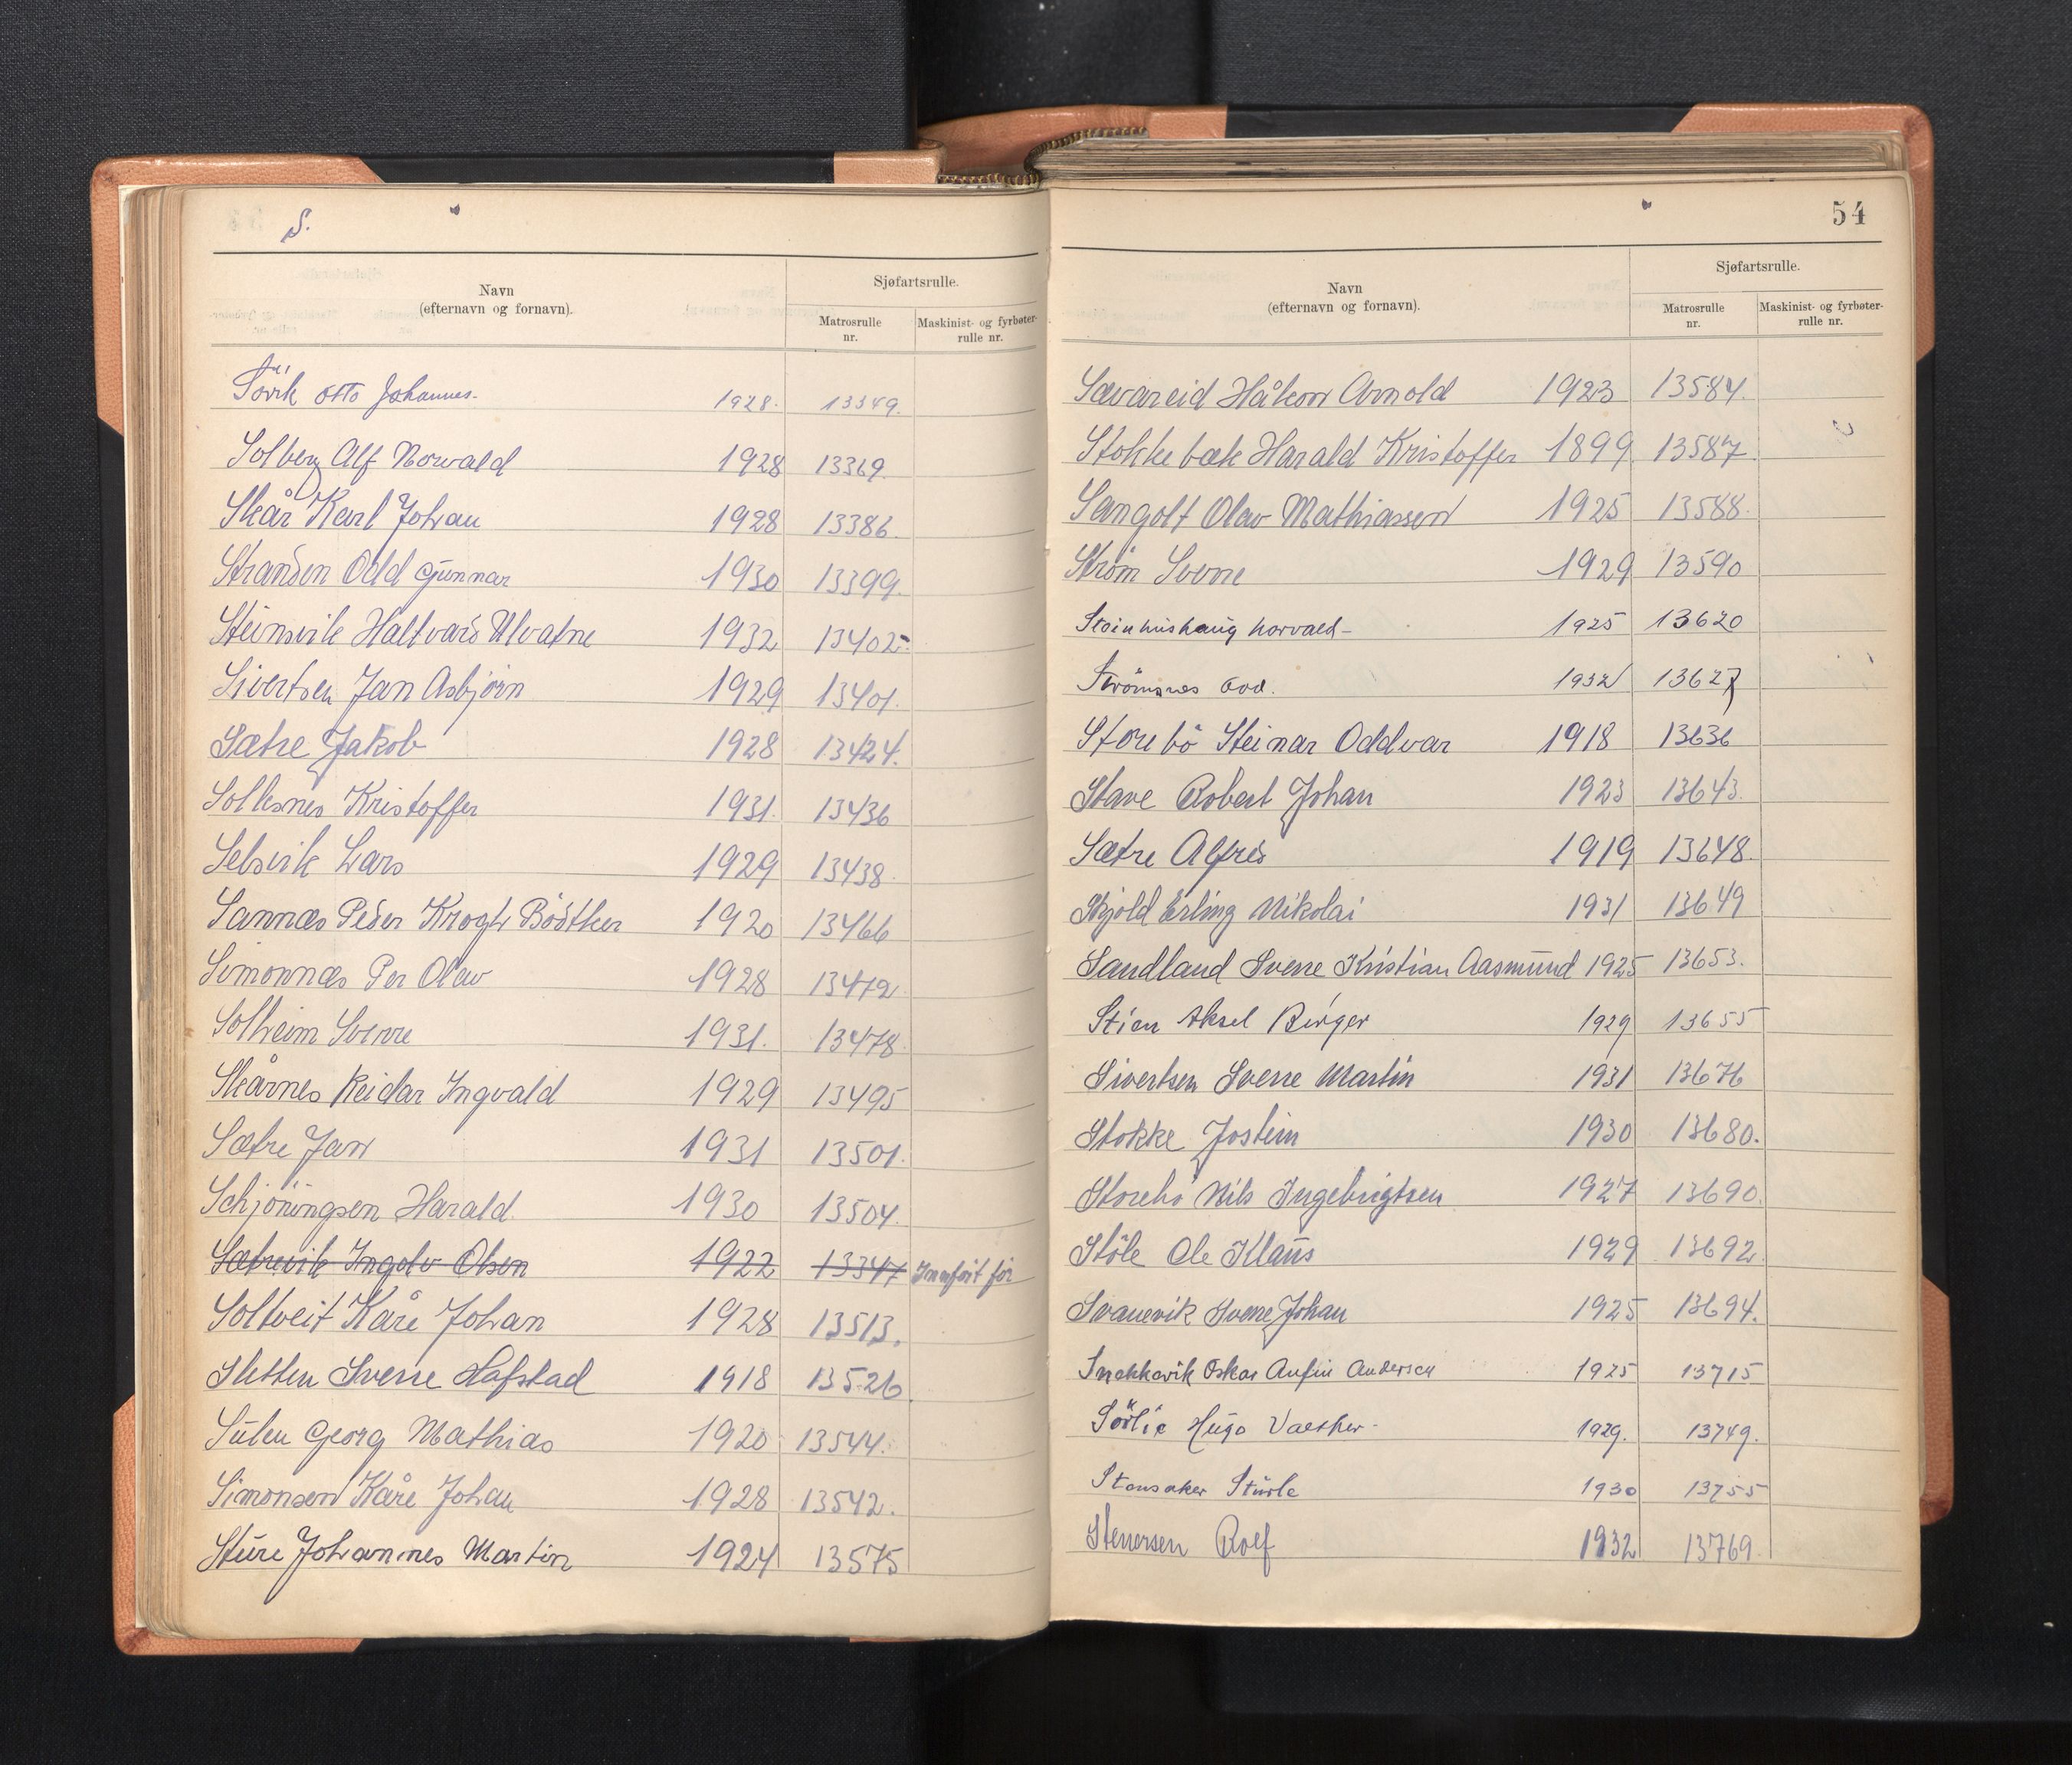 S.
Navn
(efternavn og fornavn).
Sjøfartsrulle.
Matrosrulle
nr.
Maskinist- og fyrbøter-
rulle nr.
Sörik Otto Johannes. 1928. 13349.
Solberg Alf Norvald 1928 13369.
Skår Karl Johan 1928 13386.
Stranden Odd Gunnar 1930 13399.
Steinsvik Hallvard Ulvatne 1932 13402
Sivertsen Jan Asbjörn 1929 13401.
Sætre Jakob 1928 13424.
Sollesnes Kristoffer 1931. 13436
Selsvik Lars 1929 13438.
Sannæs Peder Krogh Bödtker 1920 13466
Simonnæs Per Olav 1928 13472
Solheim Sverre 1931. 13478.
Skårnes Reidar Ingvald 1929 13495
Sætre Jan 1931 13501.
Schjöningsen Harald. 1930 13504.
Sætrevik Ingolv Olsen 1922 13347 Innfört för
Soltveit Kåre Johan 1928 13513.
Sletten Sverre Hafstad 1918 13526
Sulen Georg Mathias 1920 13544.
Simonsen Kåre Johan 1928 13542.
Sture Johannes Martin 1924 13575
54
Navn
(efternavn og fornavn).
Sjøfartsrulle.
Matrosrulle
nr.
Maskinist- og fyrbøter-
rulle nr.
Sævareid Håkon Arnold 1923 13584.
Stokkebæk Harald Kristoffer 1899 13587
Sangolt Olav Mathiassen 1925 13588.
Strøm Sverre 1929 13590
norvald- 1925 13620
Strömsnes Odd. 1932 13627
Storebö Steinar Oddvar 1918 13636
Stave Robert Johan 1923 13643.
Sætre Alfred 1919 13648.
Skjold Erling Nikolai 1931 13649
Sandland Sverre Kristian Aasmund 1925 13653.
Stien Aksel Birger 1929 13655
Sivertsen Sverre Martin 1931 13676
Stokke Jostein 1930 13680.
Storebö Nils Ingebrigtsen 1927 13690.
Støle Ole Klaus 1929 13692.
Svanevik Sverre Johan 1925 13694.
Snekkevik Oskar Anfin Andersen 1925 13715
Sörlie Hugo Valther- 1929. 13749.
Stensaker Sturle 1930 13755
Stenersen Rolf 1932 13769.